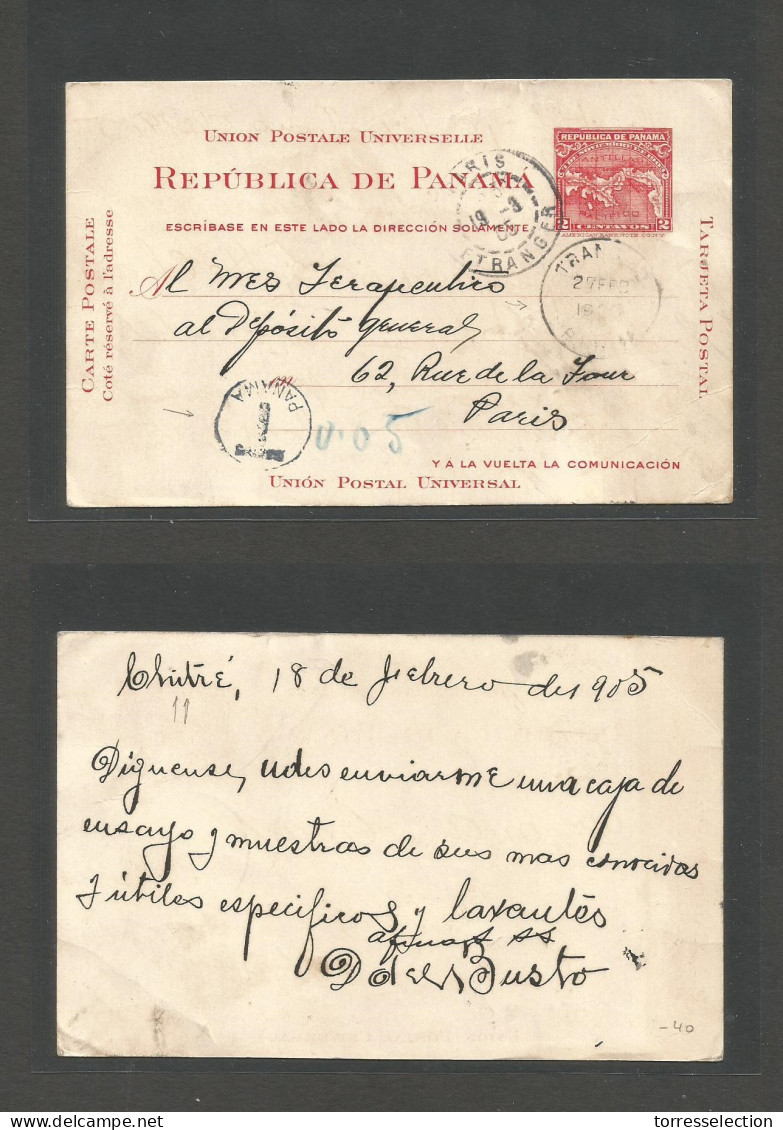 UNION POSTALE UNIVERSELLE
REPÚBLICA DE PANAMÁ
ESCRÍBASE EN ESTE LADO LA DIRECCIÓN SOLAMENTE
CARTE POSTALE
Coté réservé à l'adresse
TARJETA POSTAL
REPÚBLICA DE PANAMÁ
2 CENTAVOS 2
ETRANGER
TRAN
27 FEB
Al Mes Terapeutico
al Depósito General
62, Rue de la Tour
Paris
PANAMA
T
0.05
Y Á LA VUELTA LA COMUNICACIÓN
UNIÓN POSTAL UNIVERSAL
Chitré, 18 de Febrero de 1905
11
Díguense, udes enviarme una caja de
ensayo y muestras de sus mas conocidas
y útiles especificos y laxantes
SS
D del Busto
-40
torresselection